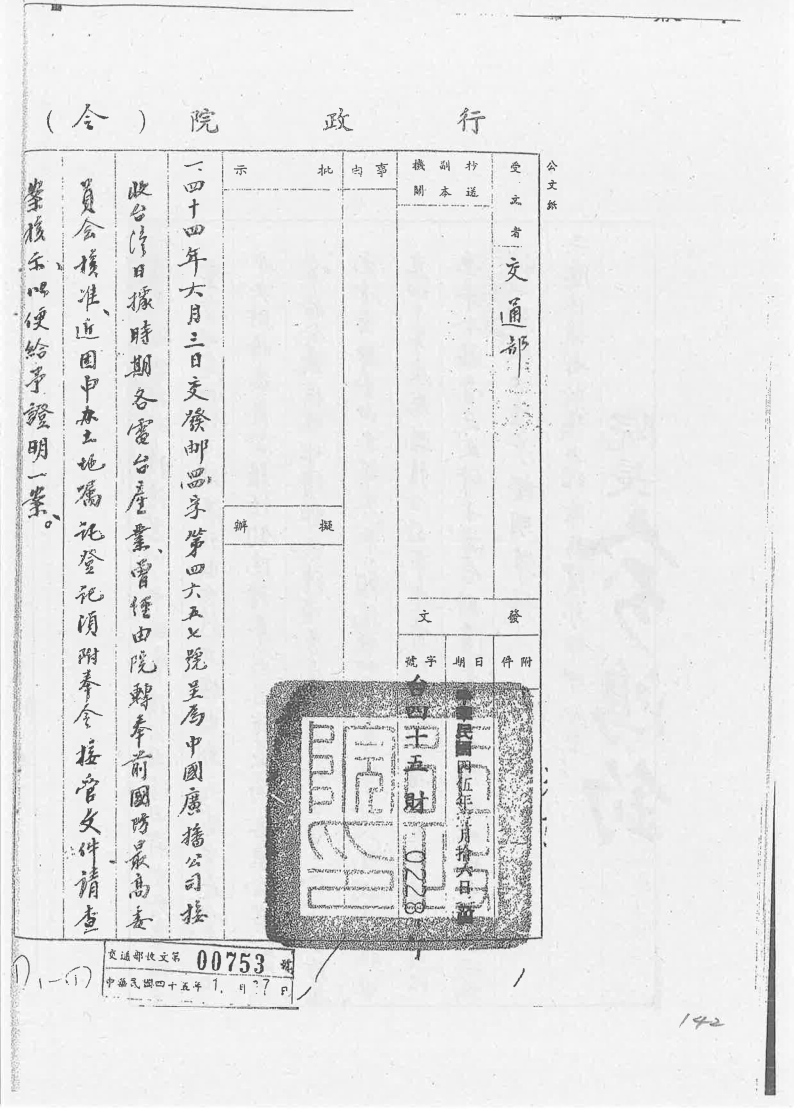 行政院（令）
公文紙
受文者 交通部
抄送副本機關
事由
批示
擬辦
發文
附件
日期 中華民國四伍年 月拾六日
字號 台四十五財 0228
一、四十四年六月三日交發郵(四)字第四六五七號呈為中國廣播公司接
收台灣日據時期各電台產業、曾經由院轉奉前國防最高委
員會核准、近因申办土地囑託登記須附奉令接管文件請查
案核示以便給予證明一案。
交通部收文第 00753 號
中華民國四十五年 1 月 27 日
142